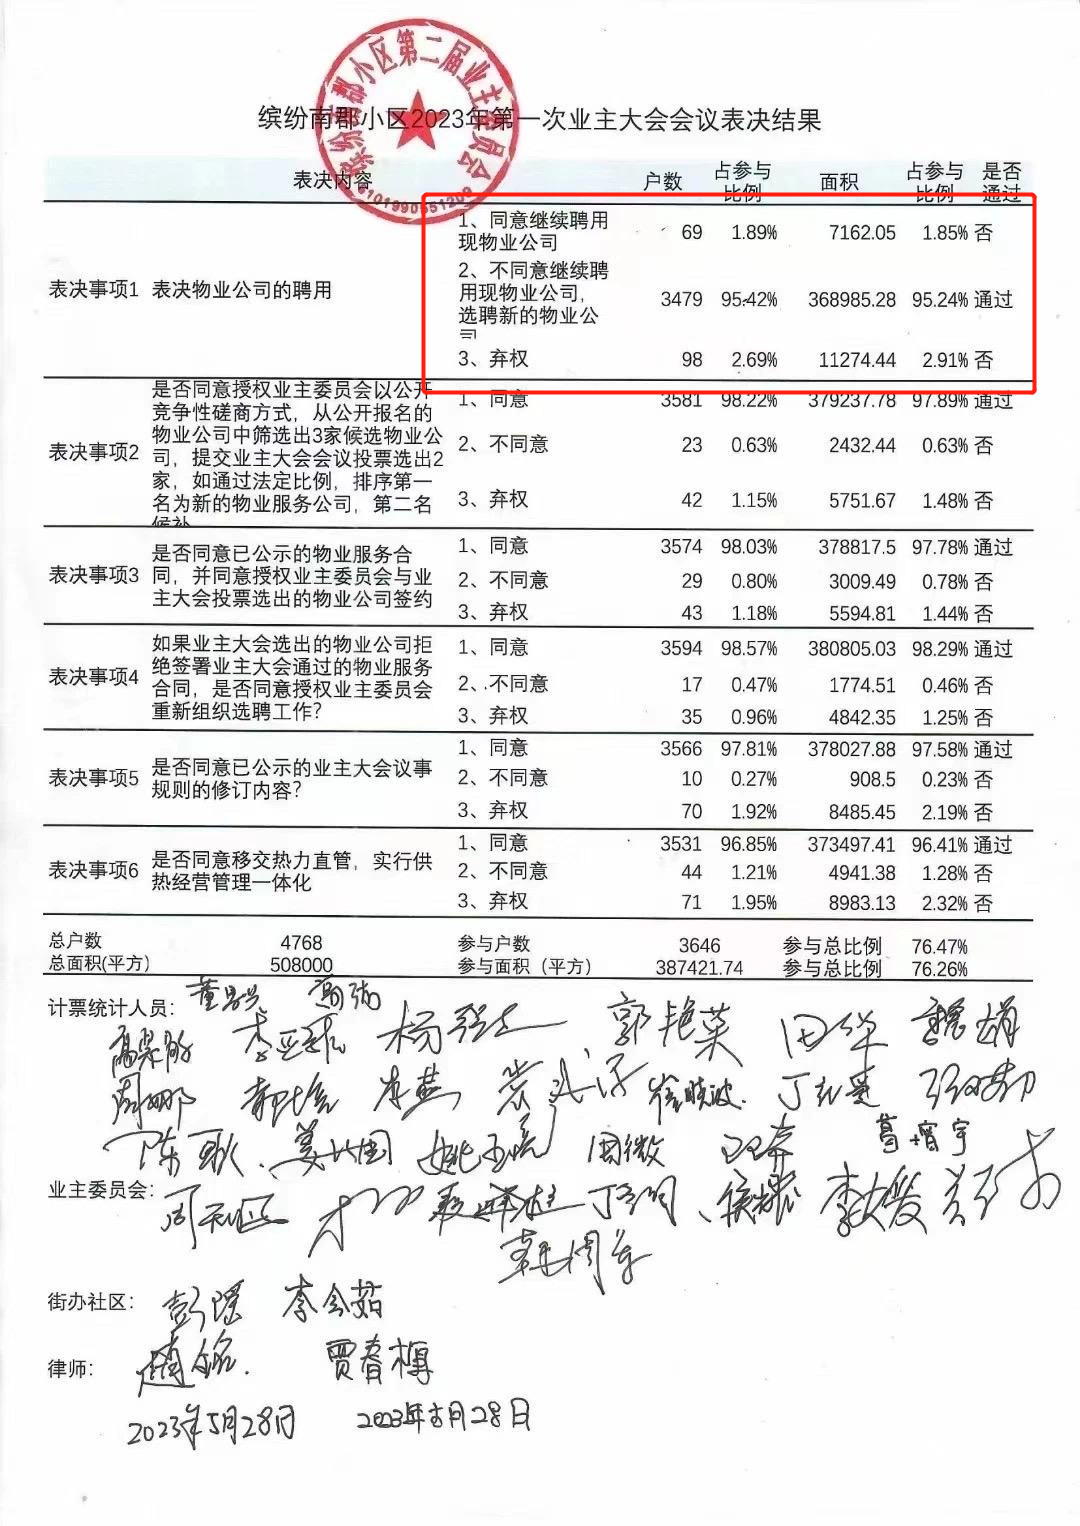 缤纷南郡小区第二届业主委员会
6101990551209
缤纷南郡小区2023年第一次业主大会会议表决结果
表决内容 户数 占参与比例 面积 占参与比例 是否通过
表决事项1 表决物业公司的聘用
1、同意继续聘用现物业公司 69 1.89% 7162.05 1.85% 否
2、不同意继续聘用现物业公司，选聘新的物业公司 3479 95.42% 368985.28 95.24% 通过
3、弃权 98 2.69% 11274.44 2.91% 否
表决事项2 是否同意授权业主委员会以公开竞争性磋商方式，从公开报名的物业公司中筛选出3家候选物业公司，提交业主大会会议投票选出2家，如通过法定比例，排序第一名为新的物业服务公司，第二名候补
1、同意 3581 98.22% 379237.78 97.89% 通过
2、不同意 23 0.63% 2432.44 0.63% 否
3、弃权 42 1.15% 5751.67 1.48% 否
表决事项3 是否同意已公示的物业服务合同，并同意授权业主委员会与业主大会投票选出的物业公司签约
1、同意 3574 98.03% 378817.5 97.78% 通过
2、不同意 29 0.80% 3009.49 0.78% 否
3、弃权 43 1.18% 5594.81 1.44% 否
表决事项4 如果业主大会选出的物业公司拒绝签署业主大会通过的物业服务合同，是否同意授权业主委员会重新组织选聘工作？
1、同意 3594 98.57% 380805.03 98.29% 通过
2、不同意 17 0.47% 1774.51 0.46% 否
3、弃权 35 0.96% 4842.35 1.25% 否
表决事项5 是否同意已公示的业主大会议事规则的修订内容？
1、同意 3566 97.81% 378027.88 97.58% 通过
2、不同意 10 0.27% 908.5 0.23% 否
3、弃权 70 1.92% 8485.45 2.19% 否
表决事项6 是否同意移交热力直管，实行供热经营管理一体化
1、同意 3531 96.85% 373497.41 96.41% 通过
2、不同意 44 1.21% 4941.38 1.28% 否
3、弃权 71 1.95% 8983.13 2.32% 否
总户数 4768 参与户数 3646 参与总比例 76.47%
总面积(平方) 508000 参与面积（平方） 387421.74 参与总比例 76.26%
计票统计人员：
郭艳菜 田华
周娜 李燕 崔晓波
周微 葛增宇
业主委员会：
李媛
街办社区： 彭瑶 李会茹
律师： 赵铭 贾春梅
2023年5月28日 2023年5月28日